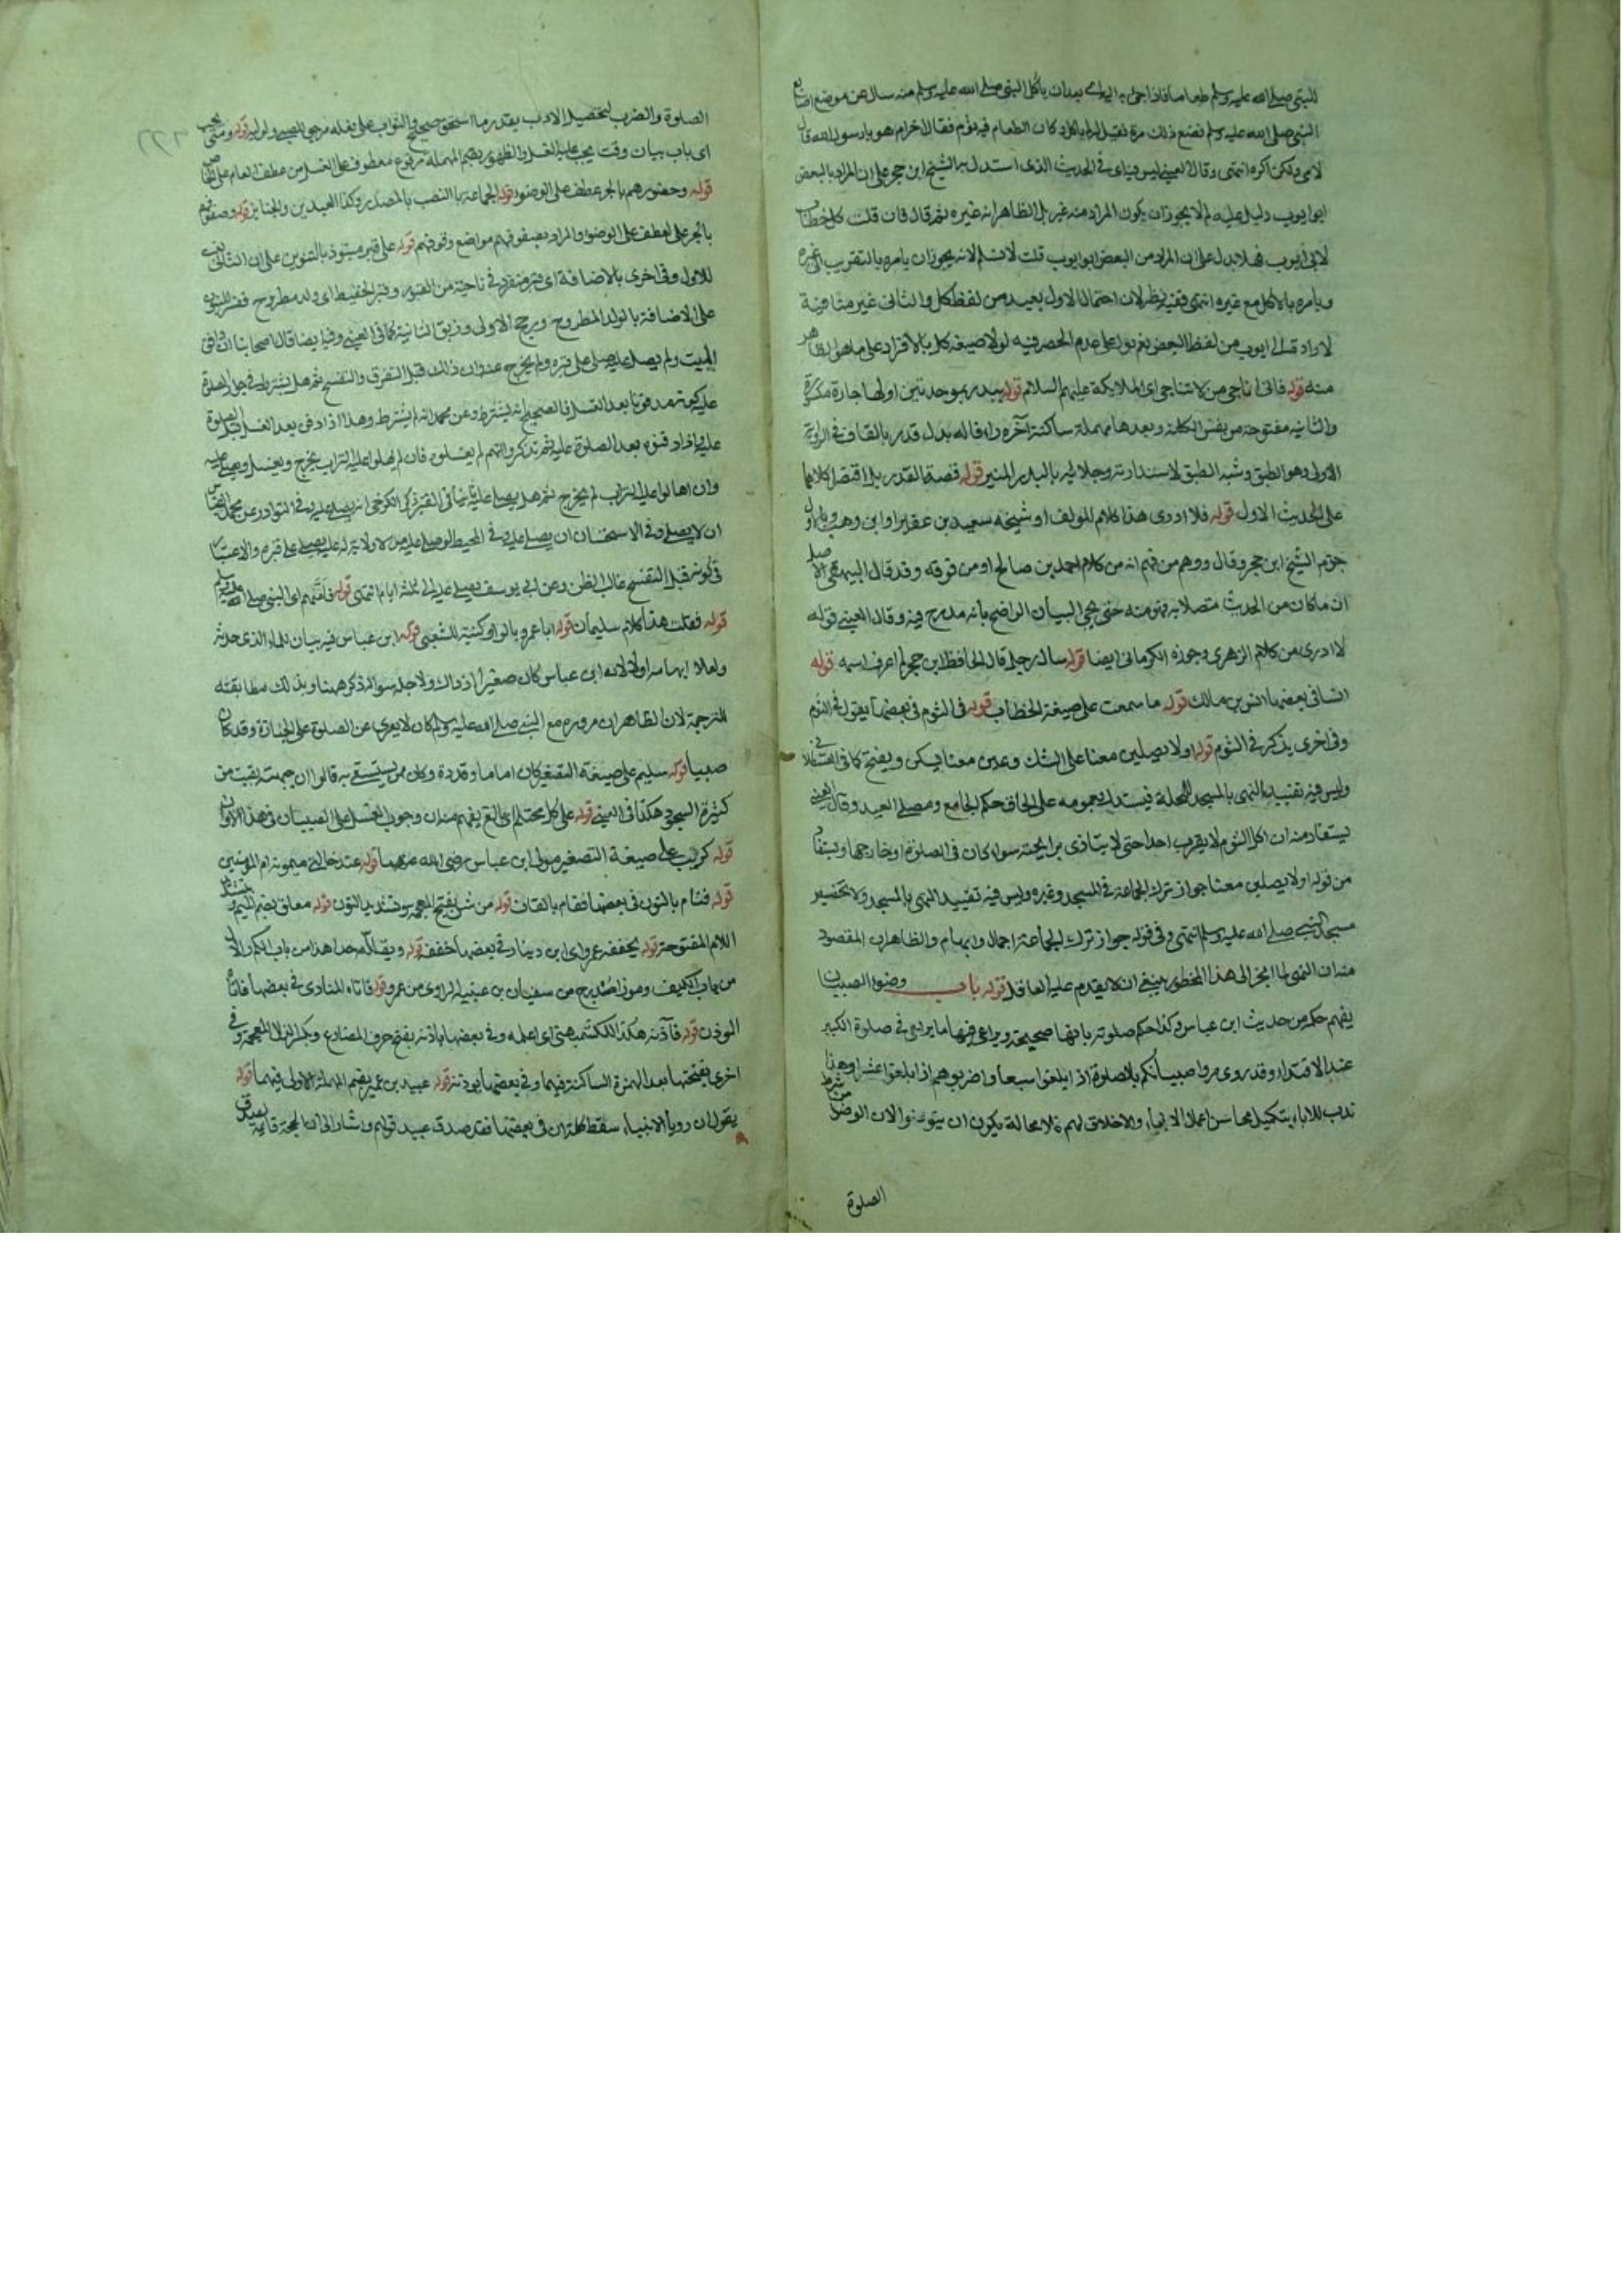 للنبي صلى الله عليه وسلم طعاما فاذا جئ به اليه اى بعد ان ياكل النبي صلى الله عليه وسلم منه سال عن موضع اصابع
النبي صلى الله عليه وسلم فصنع ذلك مرة فقيل له لم ياكل وكان الطعام فيه ثوم فقال احرام هو يا رسول الله قال
لا ولكن اكره انتهى وقال العيني ليس في الحديث الذى استدل به الشيخ ابن حجر على ان المراد بالبعض
ابو ايوب دليل عليه لم لا يجوز ان يكون المراد منه غيره بل الظاهر انه غيره ثم قال فان قلت كل خطاب
لابى ايوب فهلا يدل على ان المراد من البعض ابو ايوب قلت لا نسلم لانه يجوز ان يامره بالتقريب الى غيره
ويامره بالاكل مع غيره انتهى وفيه نظر لان احتمال الاول بعيد من لفظ كل والثانى غير منافية
لارادة ابى ايوب من لفظ البعض نعم يدل على عدم الحصر فيه لولا صيغة كل بالافراد على ما هو الظاهر
منه قوله فانى اناجى من لا تناجى اى الملائكة عليهم السلام قوله ببدر بموحدتين اولها جارة مكسورة
والثانية مفتوحة من نفس الكلمة وبعدها مهملة ساكنة آخره راء قاله بدل قدر بالقاف في الرواية
الاولى وهو الطبق وشبه الطبق لاستدارته وجلاليه بالبدر المنير قوله قصة القدر بل اقتصر كلاهما
على الحديث الاول قوله فلا ادرى هذا كلام المؤلف او شيخه سعيد بن عفير او ابن وهب وبالاول
جزم الشيخ ابن حجر وقال ووهم من فهم انه من كلام احمد بن صالح او من فوقه وقد قال البيهقى الاصل
ان ما كان من الحديث متصلا به فهو منه حتى يجئ البيان الواضح بانه مدرج فيه وقال العينى قوله
لا ادرى من كلام الزهرى وجوزه الكرمانى ايضا قوله سال رجل قال الحافظ ابن حجر لم اعرف اسمه قوله
انسا في بعضها انس بن مالك قوله ما سمعت على صيغة الخطاب قوله في الثوم في بعضها يقول في الثوم
وفى اخرى يذكر في الثوم قوله او لا يصلين معنا على الشك وعين معنا يسكن ويفتح كما في
وليس فيه تقييد النهى بالمسجد فيستدل بعمومه على الحاق حكم الجامع ومصلى العيد وقال العينى
يستفاد منه ان اكل الثوم لا يقرب احدا حتى لا يتاذى برايحته سواء كان في الصلوة او خارجها ويستفاد
من قوله او لا يصلين معنا جواز ترك الجماعة في المسجد وغيره وليس فيه تقييد النهى بالمسجد ولا تخصيص
مسجد النبي صلى الله عليه وسلم انتهى وفي قوله جواز ترك الجماعة اجمال وابهام والظاهر ان المقصود
منه ان النهى لما انجر الى هذا المحظور ينبغى ان لا يقدم عليه العاقل قوله باب وضوء الصبيان
يفهم حكمه من حديث ابن عباس وكذا حكم صلوته بانها صحيحة ويراعى فيها ما يراعى في صلوة الكبير
عند الاقتداء وقد روى مروا صبيانكم بالصلوة اذا بلغوا سبعا واضربوهم اذا بلغوا عشرا وهذا
ندب للاباء بتكميل محاسن اعمال الابناء والاخلاق لهم فلا محالة يكون ان يتوضوا لان الوضوء من شرط
الصلوة
الصلوة والضرب لتحصيل الادب بقدر ما استحق صحيح والثواب على فعله مرجو للصبى ولوليه قوله ومتى يجب
اى باب بيان وقت يجب عليه الغسل والطهور بضم المهملة مرفوع معطوف على الغسل من عطف العام على الخاص
قوله وحضورهم بالجر عطف على الوضوء قوله الجماعة بالنصب بالمصدر وكذا العيدين والجنايز قوله وصفوفهم
بالجر على العطف على الوضوء والمراد بصفوفهم مواضع وقوفهم قوله على قبر منبوذ بالتنوين على ان الثانى نعت
للاول وفى اخرى بالاضافة اى قبر منفرد في ناحية من القبور وقبر اللقيط اى ولد مطروح ففسر المنبوذ
على الاضافة بالولد المطروح ورجح الاولى وزيف الثانية كما في العينى وفيه ايضا قال اصحابنا ان دفن
الميت ولم يصل عليه صلى على قبره ولم يخرج عنه وان ذلك قبل التفرق والتفسخ ثم هل يشترط في جواز الصلوة
على قبره مدفونا بعد الغسل فالصحيح انه يشترط وعن محمد انه لم يشترط وهذا اذا دفن بعد الغسل قبل الصلوة
عليه اذا دفنوه بعد الصلوة عليه ثم تذكروا انهم لم يغسلوه فان لم يهيلوا عليه التراب يخرج ويغسل ويصلى عليه
وان اهالوا عليه التراب لم يخرج ثم هل يصلى عليه ثانيا في القبر ذكر الكرخى انه يصلى عليه وفى النوادر عن محمد القياس
ان لا يصلى وفى الاستحسان ان يصلى عليه وفى المحيط لو صلى عليه من لا ولاية له عليه يصلى على قبره والاعتبار
في كونه قبل التفسخ غالب الظن وعن ابى يوسف يصلى عليه الى ثلثة ايام انتهى قوله فامهم اى النبى صلى الله عليه وسلم
قوله فقلت هذا كلام سليمان قوله ابا عمرو بالواو كنية للشعبى قوله ابن عباس فيه بيان لما الذى حدثه
ولعلا ابهامه اولا لانه ابن عباس كان صغيرا اذ ذاك ولاجله سواله ذكر ههنا وبذلك مطابقته
للترجمة لان الظاهر ان مروره مع النبى صلى الله عليه وسلم كان لا يعرى عن الصلوة على الجنازة وقد كان
صبيا قوله سليم على صيغة التصغير كان اماما وقدوة وكان ممن يستسقى به قالوا ان جبهته نقبت من
كثرة السجود هكذا في العينى قوله على كل محتلم اى بالغ يفهم منه ان وجوب الغسل على الصبيان في هذا الاوان
قوله كريب على صيغة التصغير مولى ابن عباس رضى الله عنهما قوله عند خالتى ميمونة ام المؤمنين
قوله فنام بالنون في بعضها فقام بالقاف قوله من شن بفتح المعجمة وتشديد النون قوله معلق بضم الميم وتشديد
اللام المفتوحة قوله يخففه عمرو اى ابن دينار وفى بعضها خففه قوله ويقلله جدا هذا من باب الكم والاول
من باب الكيف وهو مدرج من سفيان بن عيينة الراوى من عمرو قوله فاتاه المنادى في بعضها فاتاه
المؤذن قوله فآذنه هكذا اى اعلمه وفى بعضها ياذنه بفتح حرف المضارع وبكسر الذال المعجمة وفى
اخرى بفتحها بعد الهمزة الساكنة فيهما وفى بعضها يؤذنه قوله عبيد بن عمير بضم المهملة الاولى فيهما قوله
يقول ان رويا الانبياء سقط كلمة ان في بعضها فقد صدق عبيد قولهم